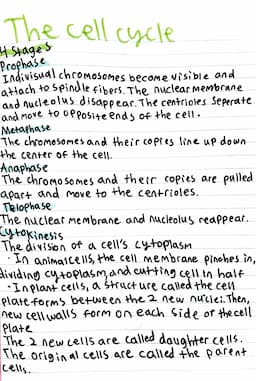 The cell cycle
4 Stages
Prophase
Indivisual chromosomes become visible and
attach to spindle fibers. The nuclear membrane
and nucleolus disappear. The centrioles seperate
and move to opposite ends of the cell.
Metaphase
The chromosomes and their copies line up down
the center of the cell.
Anaphase
The chromosomes and their copies are pulled
apart and move to the centrioles.
Telophase
The nuclear membrane and nucleolus reappear.
Cytokinesis
The division of a cell's cytoplasm
· In animal cells, the cell membrane pinches in,
dividing cytoplasm, and cutting cell in half
· In plant cells, a structure called the cell
plate forms between the 2 new nuclei. Then,
new cell walls form on each side of the cell
plate
The 2 new cells are called daughter cells.
The original cells are called the parent
cells.